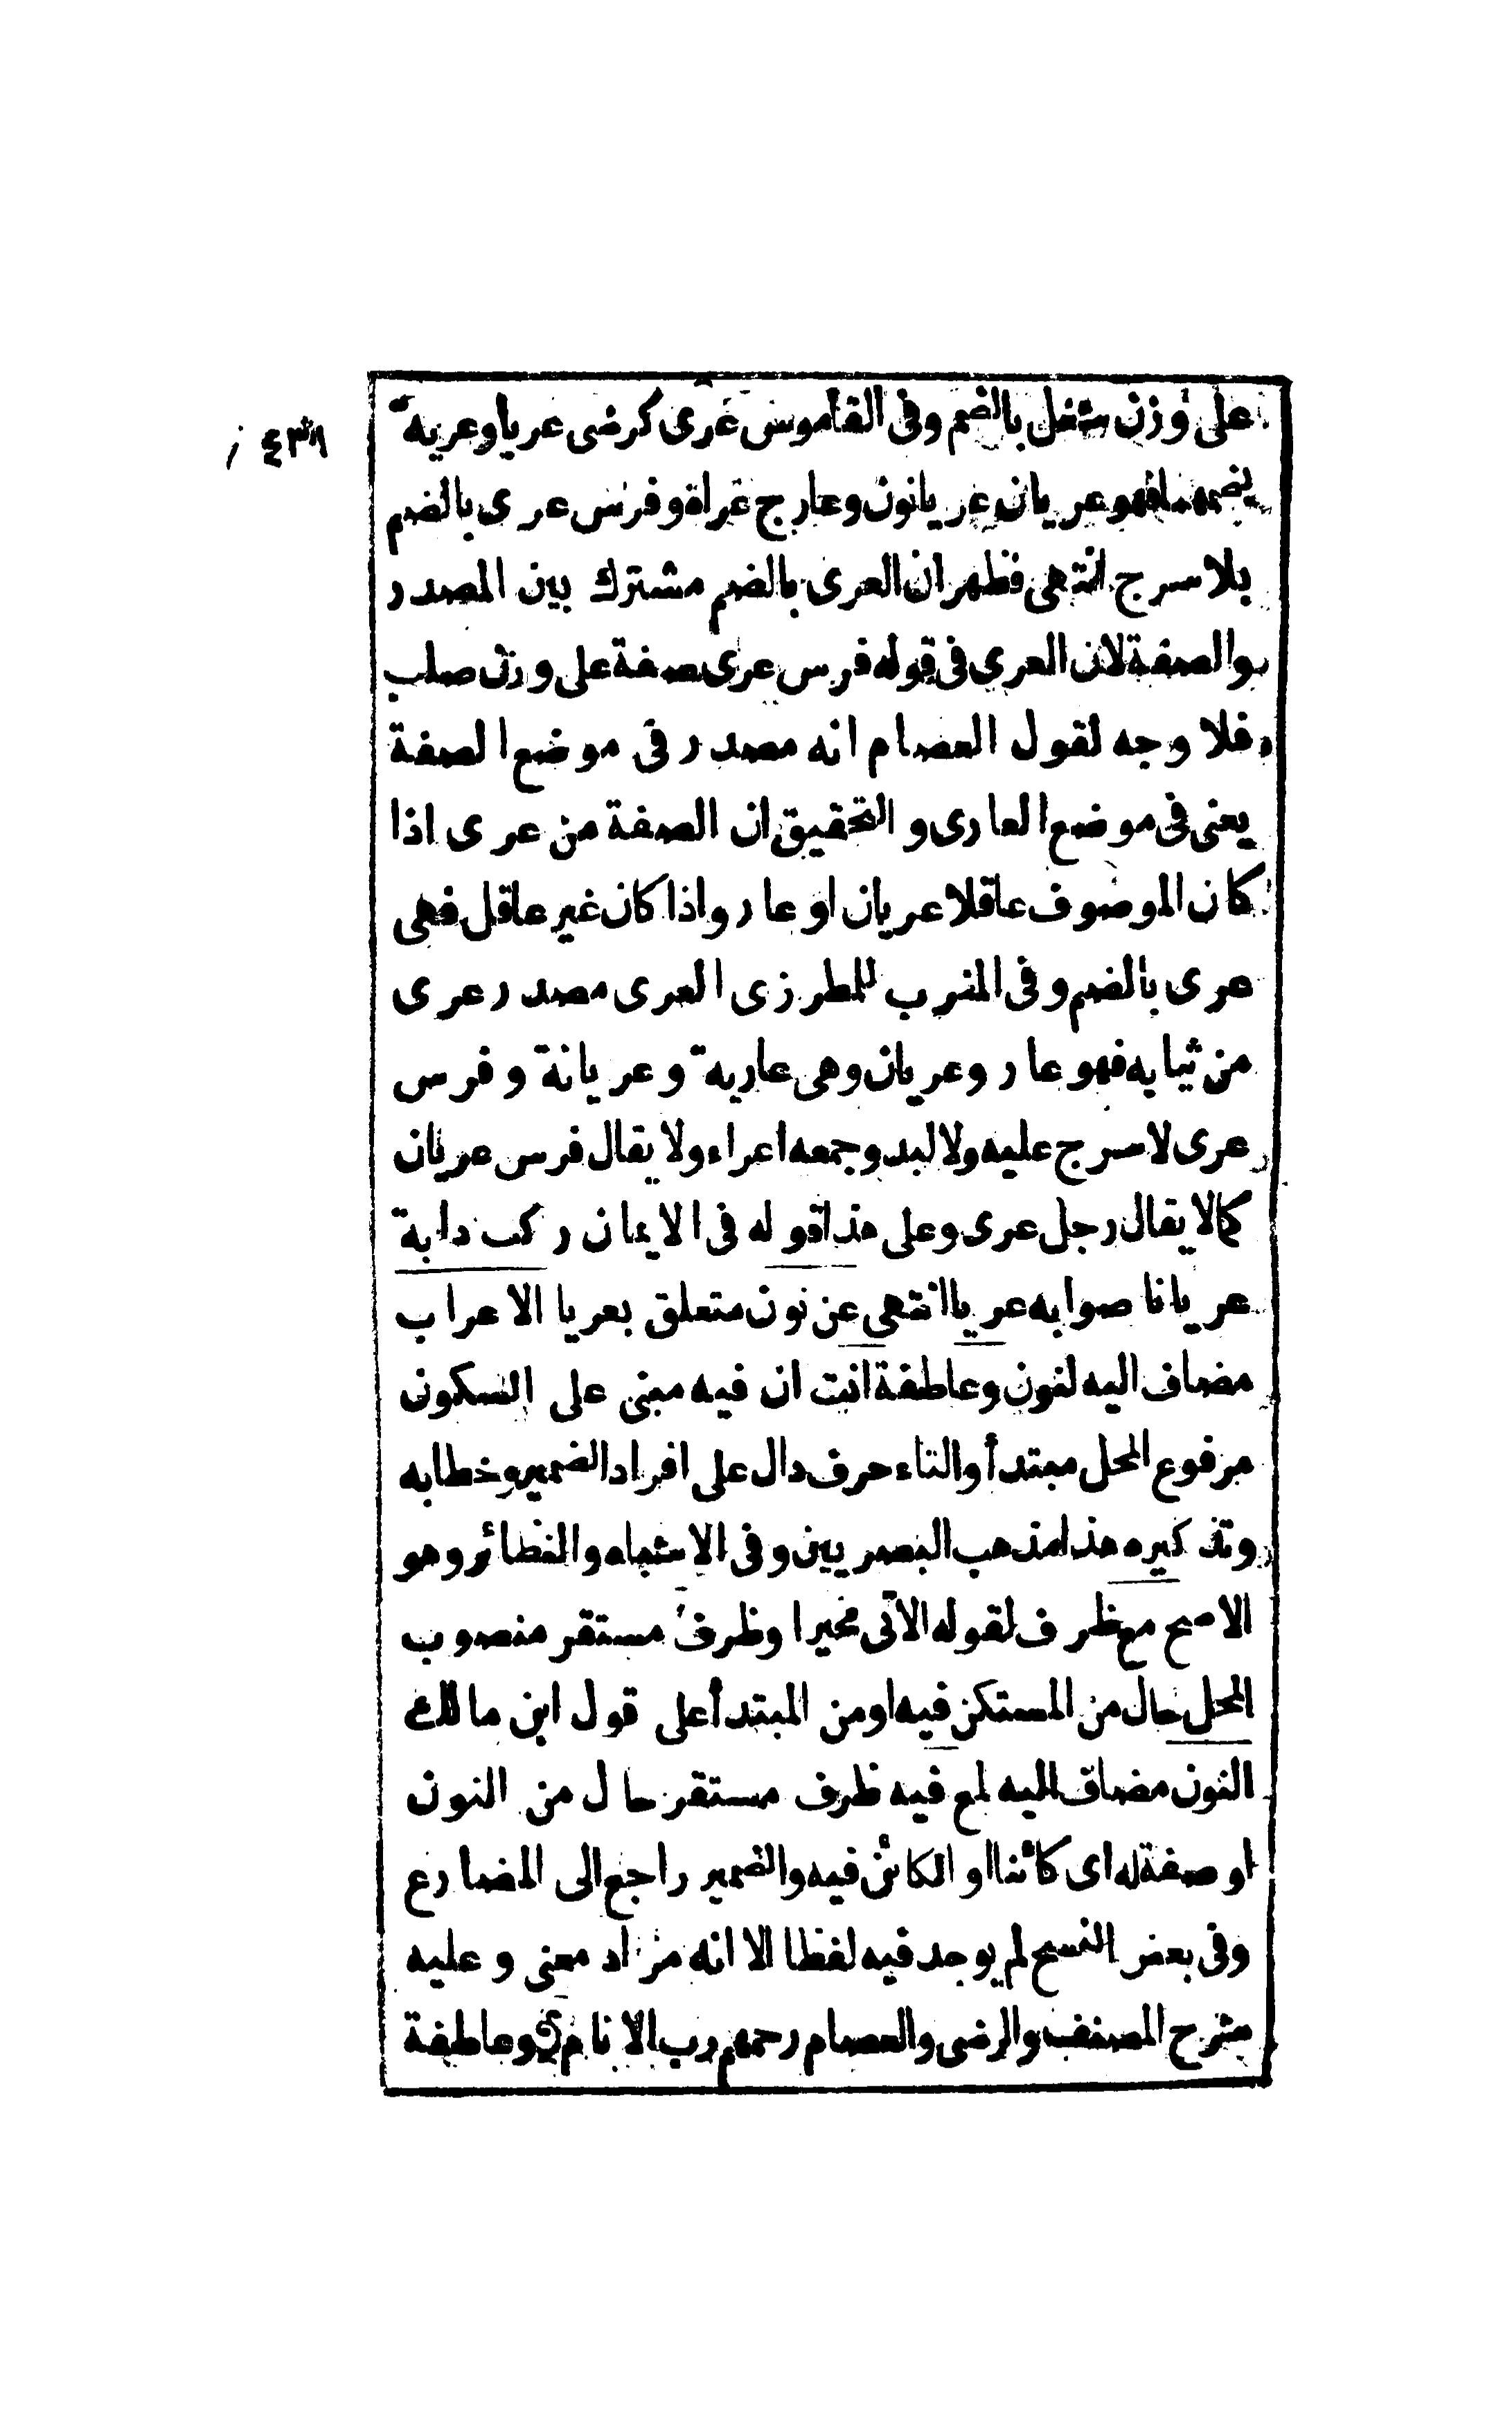 على وزن شغل بالضم وفى القاموس عرى كرضى عريا وعرية
بضمهما فهو عريان عريانون وعار ج عراة وفرس عرى بالضم
بلا سرج انتهى فظهر ان العرى بالضم مشترك بين المصدر
والصفة لان العرى فى قوله فرس عرى صفة على وزن صلب
فلا وجه لقول العصام انه مصدر فى موضع الصفة
يعنى فى موضع العارى و التحقيق ان الصفة من عرى اذا
كان الموصوف عاقلا عريان او عار واذا كان غير عاقل فهى
عرى بالضم وفى المغرب للمطرزى العرى مصدر عرى
من ثيابه فهو عار وعريان وهى عارية وعريانة وفرس
عرى لا سرج عليه ولا لبد وجمعه اعراء ولا يقال فرس عريان
كما لا يقال رجل عرى وعلى هذا قوله فى الايمان ركب دابة
عريانا صوابه عريا انتهى عن نون متعلق بعريا الاعراب
مضاف اليه لنون وعاطفة انت ان فيه مبنى على السكون
مرفوع المحل مبتدأ والتاء حرف دال على افراد الضمير وخطابه
وتذكيره هذا مذهب البصريين وفى الاشباه والنظائر وهو
الاصح مع ظرف لقوله الآتى مخيرا وظرف مستقر منصوب
المحل حال من المستكن فيه او من المبتدأ على قول ابن مالك
النون مضاف اليه لمع فيه ظرف مستقر حال من النون
او صفة له اى كائنا او الكائن فيه والضمير راجع الى المضارع
وفى بعض النسخ لم يوجد فيه لفظا الا انه مراد معنى وعليه
شرح المصنف والرضى والعصام رحمهم رب الانام و عاطفة
٤٣٨